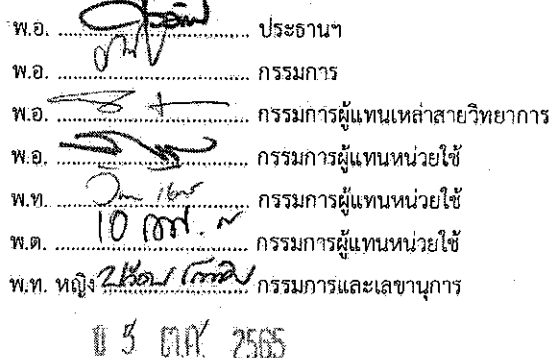 พ.อ. ................ ประธานฯ
พ.อ. ................ กรรมการ
พ.อ. ................ กรรมการผู้แทนเหล่าสายวิทยาการ
พ.อ. ................ กรรมการผู้แทนหน่วยใช้
พ.ท. ................ กรรมการผู้แทนหน่วยใช้
พ.ต. ................ กรรมการผู้แทนหน่วยใช้
พ.ท. หญิง ................ กรรมการและเลขานุการ
ต.ค. 2565